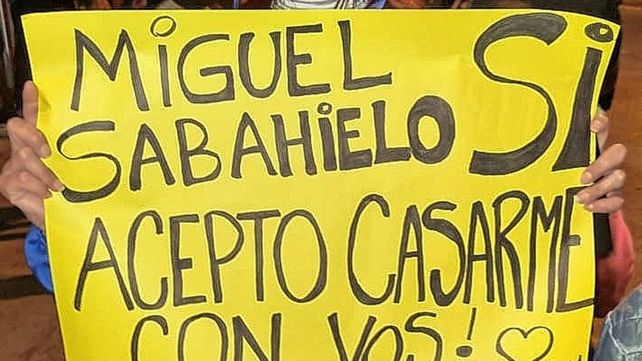 MIGUEL SI
SABAHIELO
ACEPTO CASARME
CON VOS!